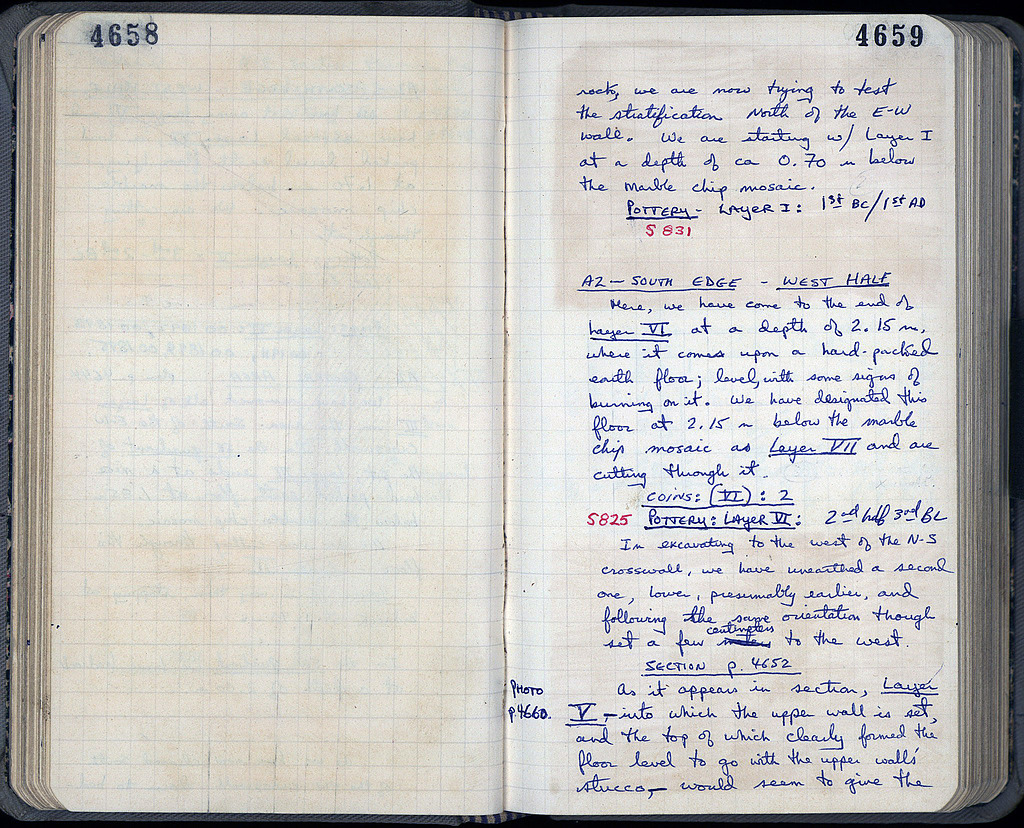 4658
4659
rock, we are now trying to test
the stratification North of the E-W
wall. We are starting w/ Layer I
at a depth of ca 0.70 m below
the marble chip mosaic.
POTTERY - LAYER I: 1st BC/1st AD
S 831
A2 - SOUTH EDGE - WEST HALF
Here, we have come to the end of
Layer VI at a depth of 2.15 m,
where it comes upon a hard-packed
earth floor; level, with some signs of
burning on it. We have designated this
floor at 2.15 m below the marble
chip mosaic as Layer VII and are
cutting through it.
COINS: (VI): 2
S825 POTTERY: LAYER VI: 2nd half 3rd BC
In excavating to the west of the N-S
crosswall, we have unearthed a second
one, lower, presumably earlier, and
following the same orientation though
set a few centimeters to the west.
SECTION p. 4652
PHOTO p.4660.
As it appears in section, Layer
V, - into which the upper wall is set,
and the top of which clearly formed the
floor level to go with the upper walls'
stucco, - would seem to give the